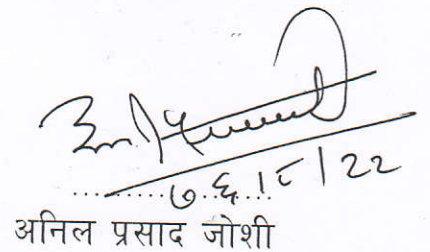 ७६।८।२२
अनिल प्रसाद जोशी